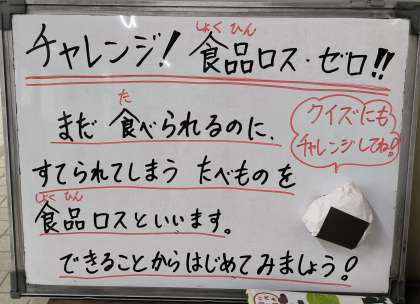 チャレンジ! 食品ロス・ゼロ!!
しょく ひん
まだ 食べられるのに、
た
クイズにも
チャレンジしてね!
すてられてしまう たべものを
食品ロスといいます。
しょく ひん
できることからはじめてみましょう!